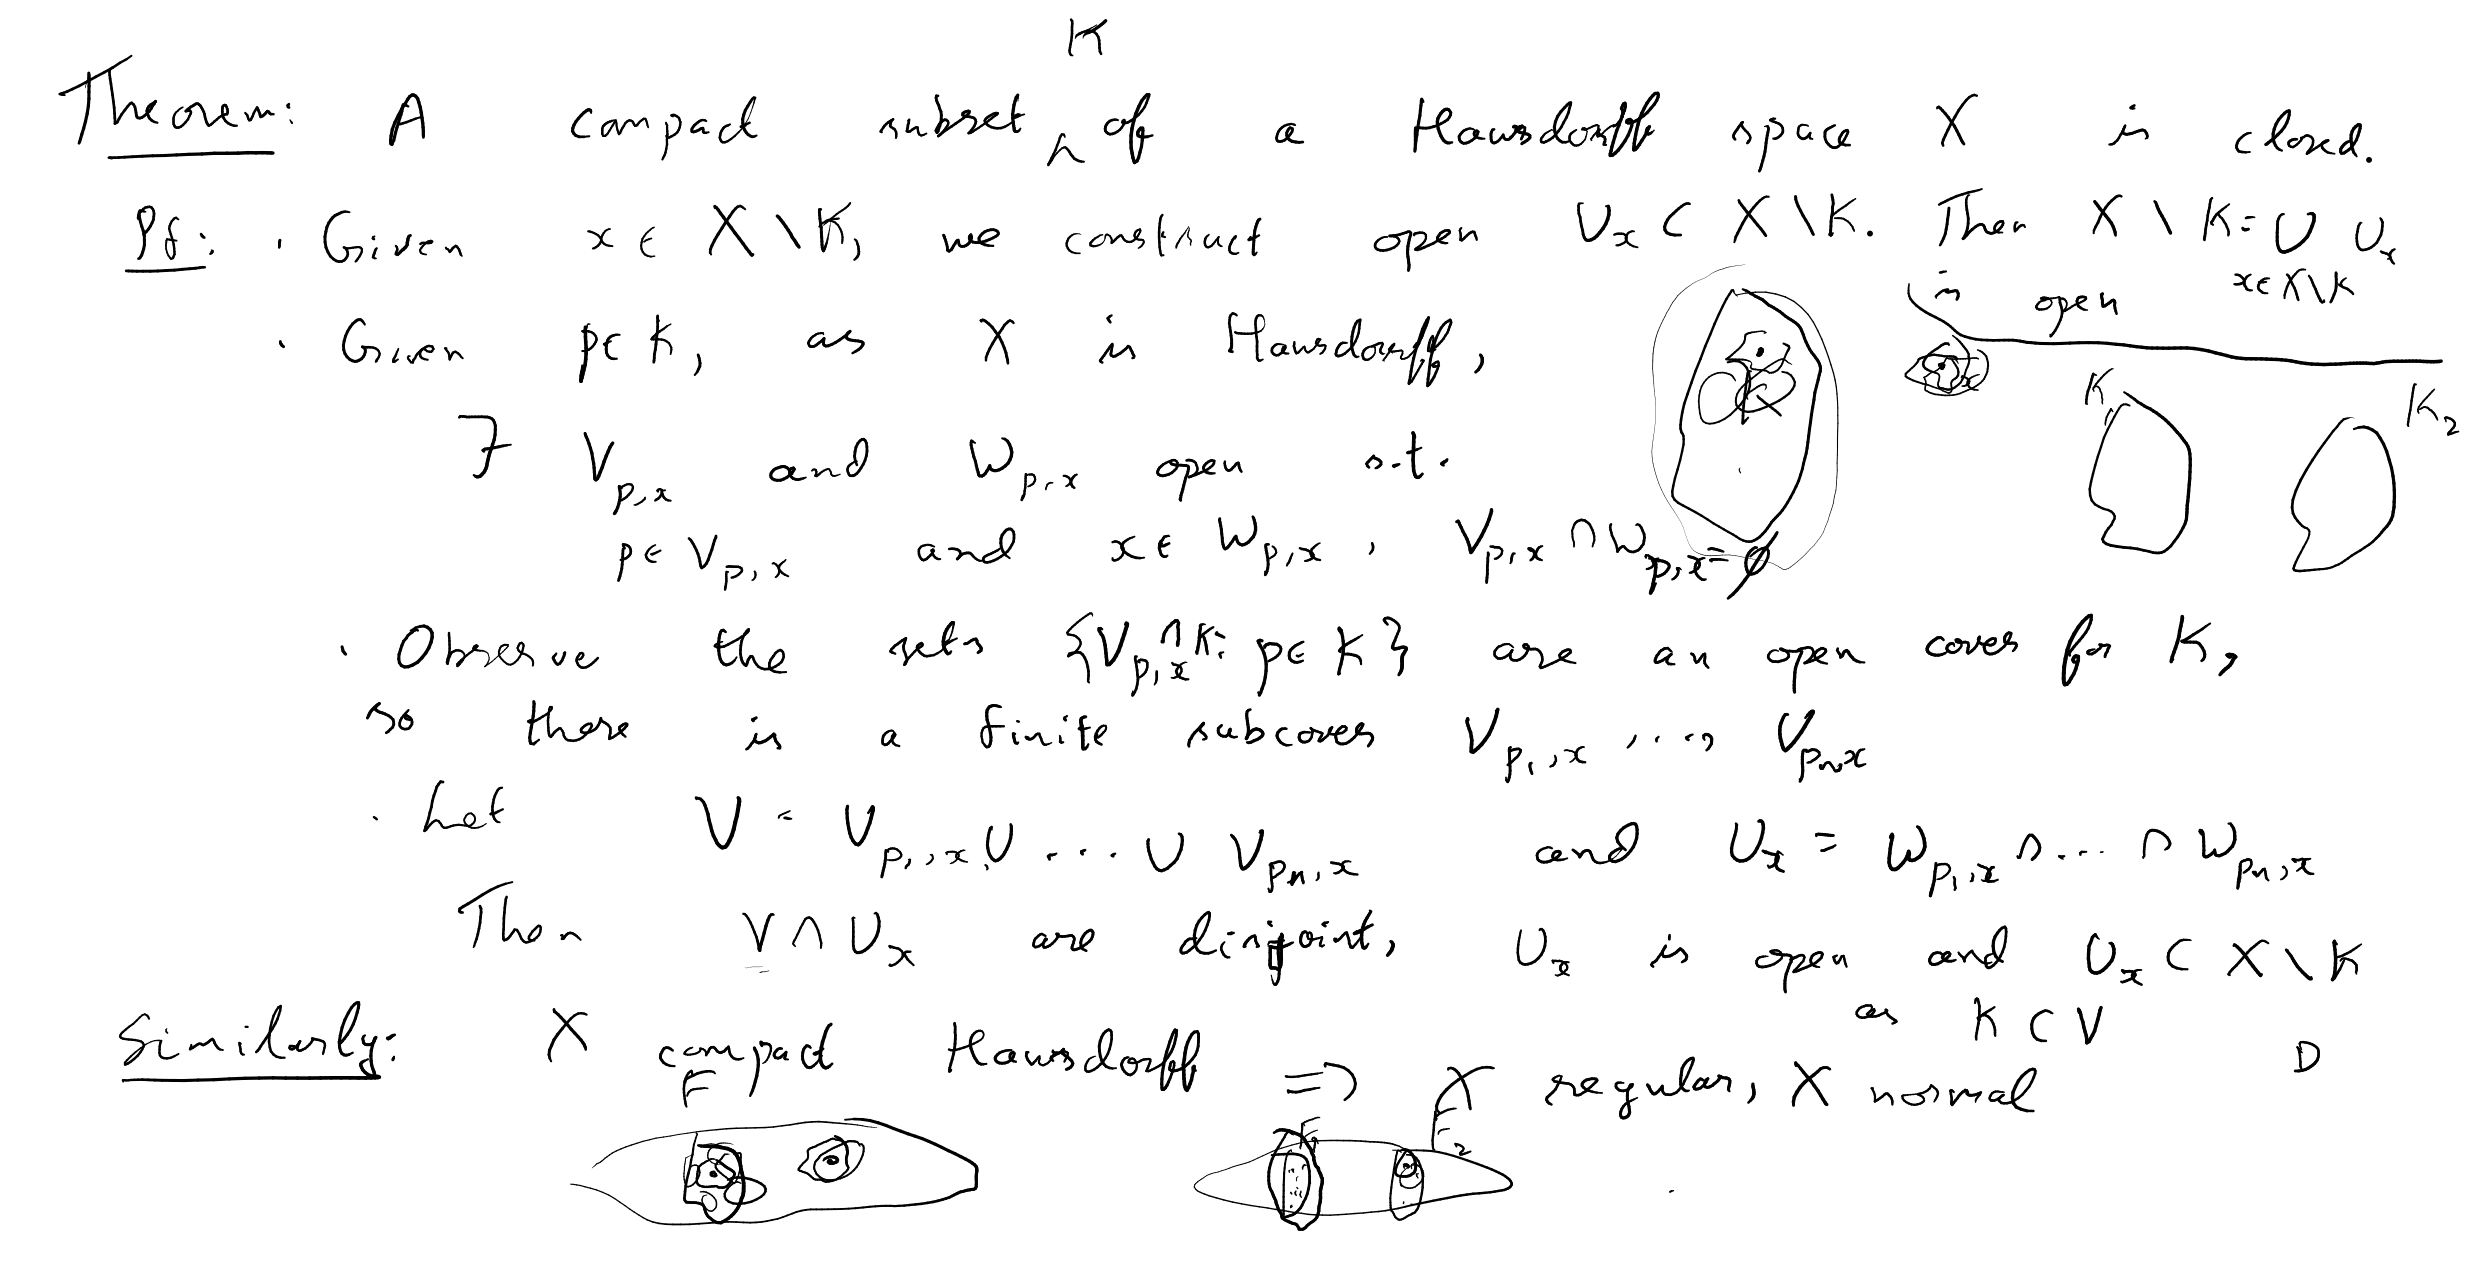 K
Theorem: A compact subset ^ of a Hausdorff space X is closed.
Pf: · Given x ∈ X \ K, we construct open U_x ⊂ X \ K. Then X \ K = ∪ U_x
x ∈ X \ K
is open
· Given p ∈ K, as X is Hausdorff,
∃ V_{p,x} and W_{p,x} open s.t.
p ∈ V_{p,x} and x ∈ W_{p,x}, V_{p,x} ∩ W_{p,x} = ∅
K
x
K_1
K_2
· Observe the sets {V_{p,x} ∩ K: p ∈ K} are an open cover for K,
so there is a finite subcover V_{p_1,x}, ..., V_{p_n,x}
· Let V = V_{p_1,x} ∪ ... ∪ V_{p_n,x} and U_x = W_{p_1,x} ∩ ... ∩ W_{p_n,x}
Then V ∩ U_x are disjoint, U_x is open and U_x ⊂ X \ K
as K ⊂ V
□
Similarly: X compact Hausdorff => X regular, X normal
F
F_1
F_2